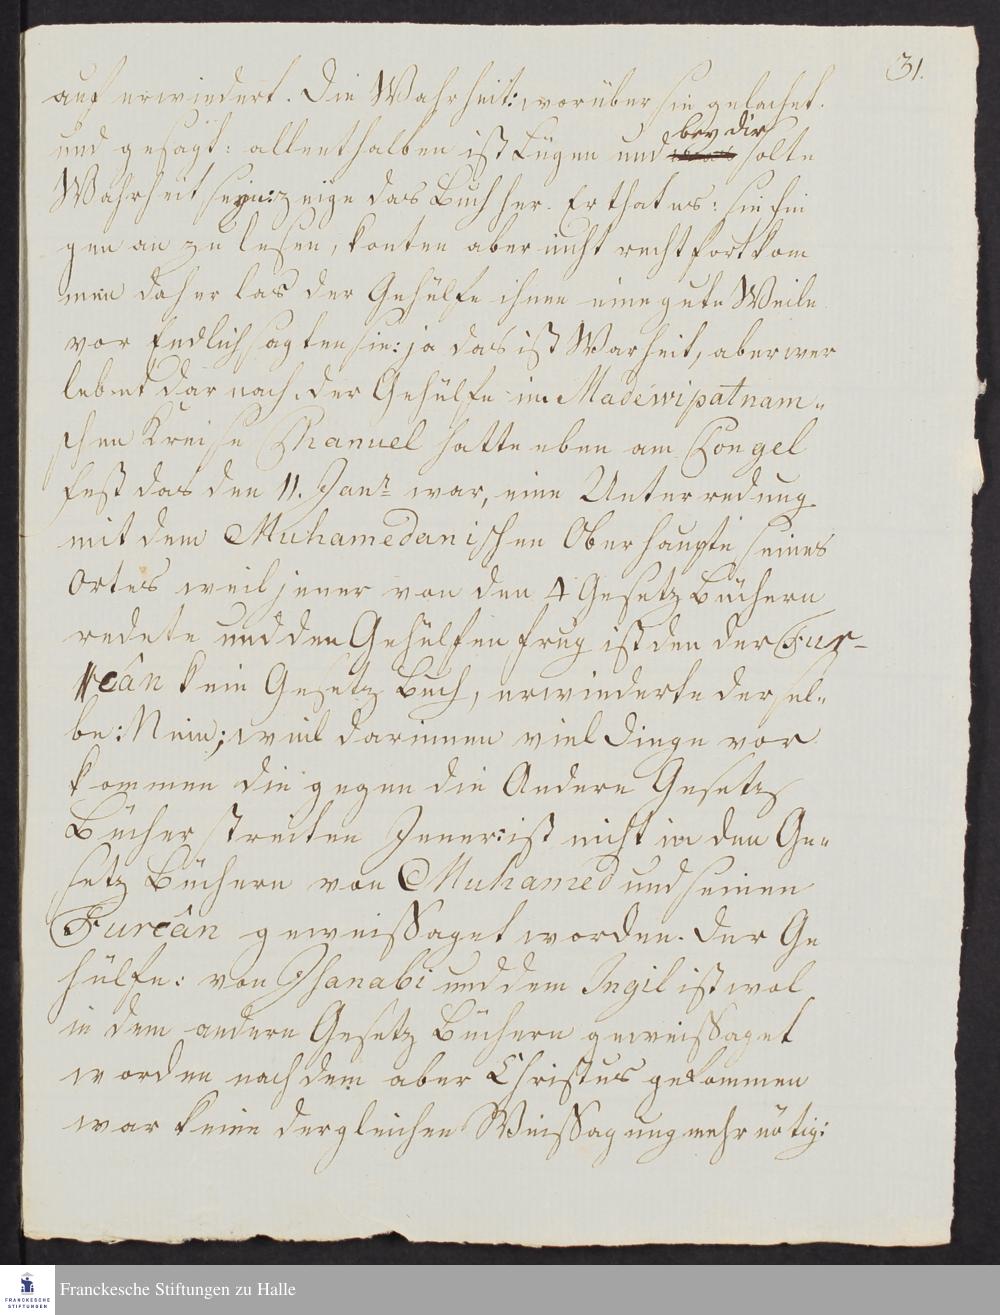 31.
auf erwiedert. Die Wahrheit: worüber sie gelachet.
und gesagt: allenthalben ist Lügen und bey dir solte
Wahrheit seyn: zeige das Buch her. Er that es: sie fin
gen an zu lesen, konten aber nicht recht fortkom
men daher las der Gehülfe ihnen eine gute Weile
vor Endlich sagten sie: ja das ist Warheit, aber wer
lebet darnach. Der Gehülfe im Madewipatnam-
schen Kreise Chanuel hatte eben am Pongel
fest das den 11. Janr war, eine Unterredung
mit dem Muhamedanischen Oberhaupte seines
Ortes weil jener von den 4 Gesetz Büchern
redete und den Gehülfen frug ist den der Fur-
cân kein Gesetz Buch, erwiederte dersel-
be: Nein; weil darinnen viel Dinge vor
kommen die gegen die Andere Gesetz
Bücher streiten Jener: ist nicht in den Ge-
setz Büchern von Muhamed und seinen
Furcân geweissaget worden. Der Ge
hülfe: von Jsanabi und dem Ingil ist wol
in dem andern Gesetz Büchern geweissaget
worden nachdem aber Christus gekommen
war keine dergleichen Weissagung mehr nötig:
Franckesche Stiftungen zu Halle
FRANCKESCHE
STIFTUNGEN